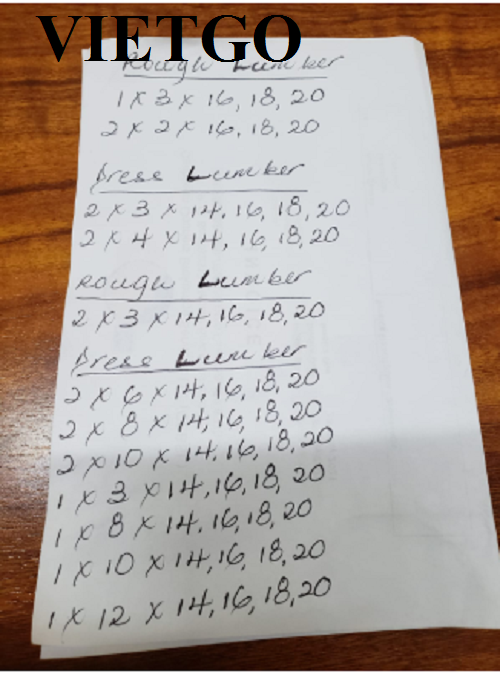 VIETGO
Rough Lumber
1 x 3 x 16, 18, 20
2 x 2 x 16, 18, 20
Dress Lumber
2 x 3 x 14, 16, 18, 20
2 x 4 x 14, 16, 18, 20
Rough Lumber
2 x 3 x 14, 16, 18, 20
Dress Lumber
2 x 6 x 14, 16, 18, 20
2 x 8 x 14, 16, 18, 20
2 x 10 x 14, 16, 18, 20
1 x 3 x 14, 16, 18, 20
1 x 8 x 14, 16, 18, 20
1 x 10 x 14, 16, 18, 20
1 x 12 x 14, 16, 18, 20